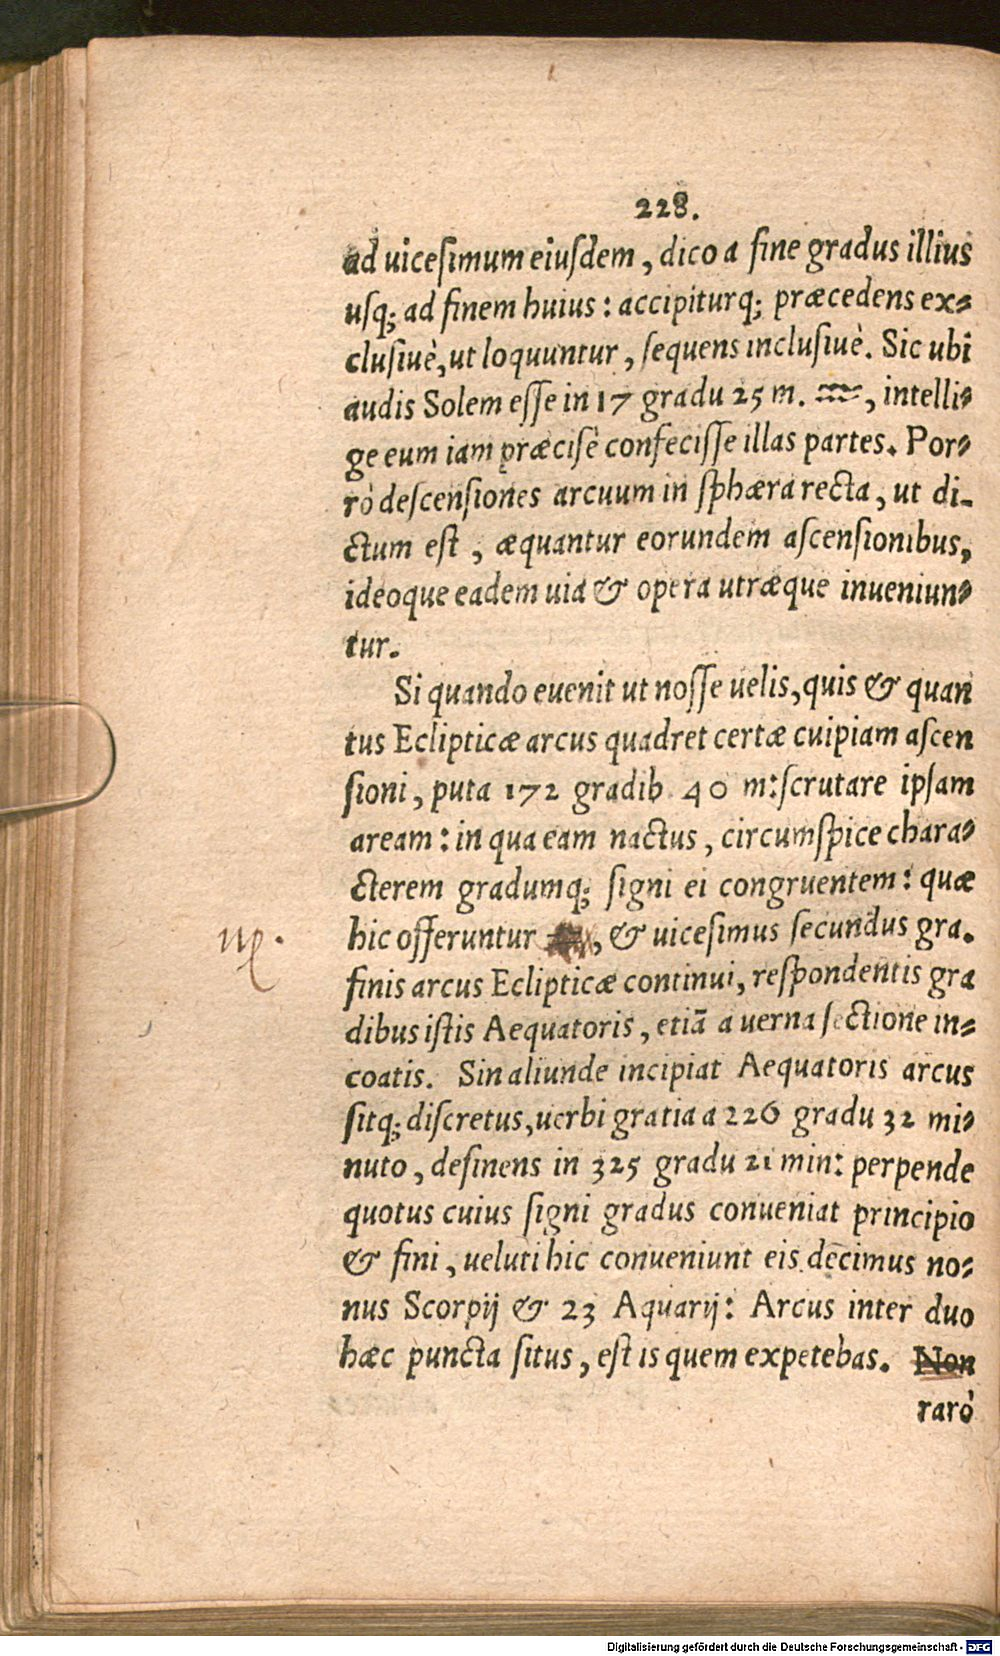 228.
ad uicesimum eiusdem, dico a fine gradus illius
usq; ad finem huius: accipiturq; præcedens ex-
clusiuè, ut loquuntur, sequens inclusiuè. Sic ubi
audis Solem esse in 17 gradu 25 m. ♒, intelli-
ge eum iam præcisè confecisse illas partes. Por-
rò descensiones arcuum in sphæra recta, ut di-
ctum est, æquantur eorundem ascensionibus,
ideoque eadem uia & opera utræque inueniun-
tur.
Si quando euenit ut nosse uelis, quis & quan
tus Eclipticæ arcus quadret certæ cuipiam ascen
sioni, puta 172 gradib. 40 m: scrutare ipsam
aream: in qua eam nactus, circumspice chara-
cterem gradumq; signi ei congruentem: quæ
hic offeruntur , & uicesimus secundus gra.
♍.
finis arcus Eclipticæ continui, respondentis gra
dibus istis Aequatoris, etiã a uerna sectione in-
coatis. Sin aliunde incipiat Aequatoris arcus
sitq; discretus, uerbi gratia a 226 gradu 32 mi-
nuto, desinens in 325 gradu 21 min: perpende
quotus cuius signi gradus conueniat principio
& fini, ueluti hic conueniunt eis decimus no-
nus Scorpij & 23 Aquarij: Arcus inter duo
hæc puncta situs, est is quem expetebas. Non
rarò
Digitalisierung gefördert durch die Deutsche Forschungsgemeinschaft - DFG